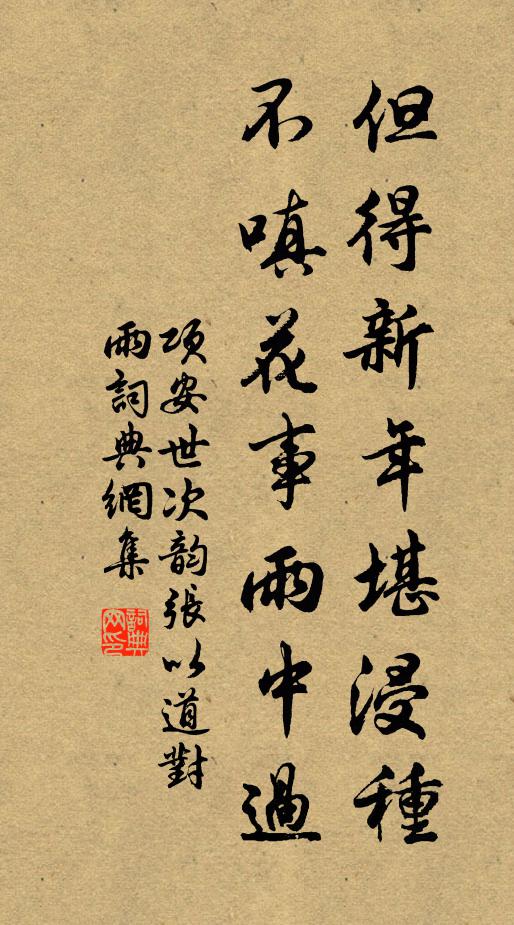 但得新年堪浸種
不嗔花事雨中過
項安世次韵張以道對
雨詞典網集
詞典
网印